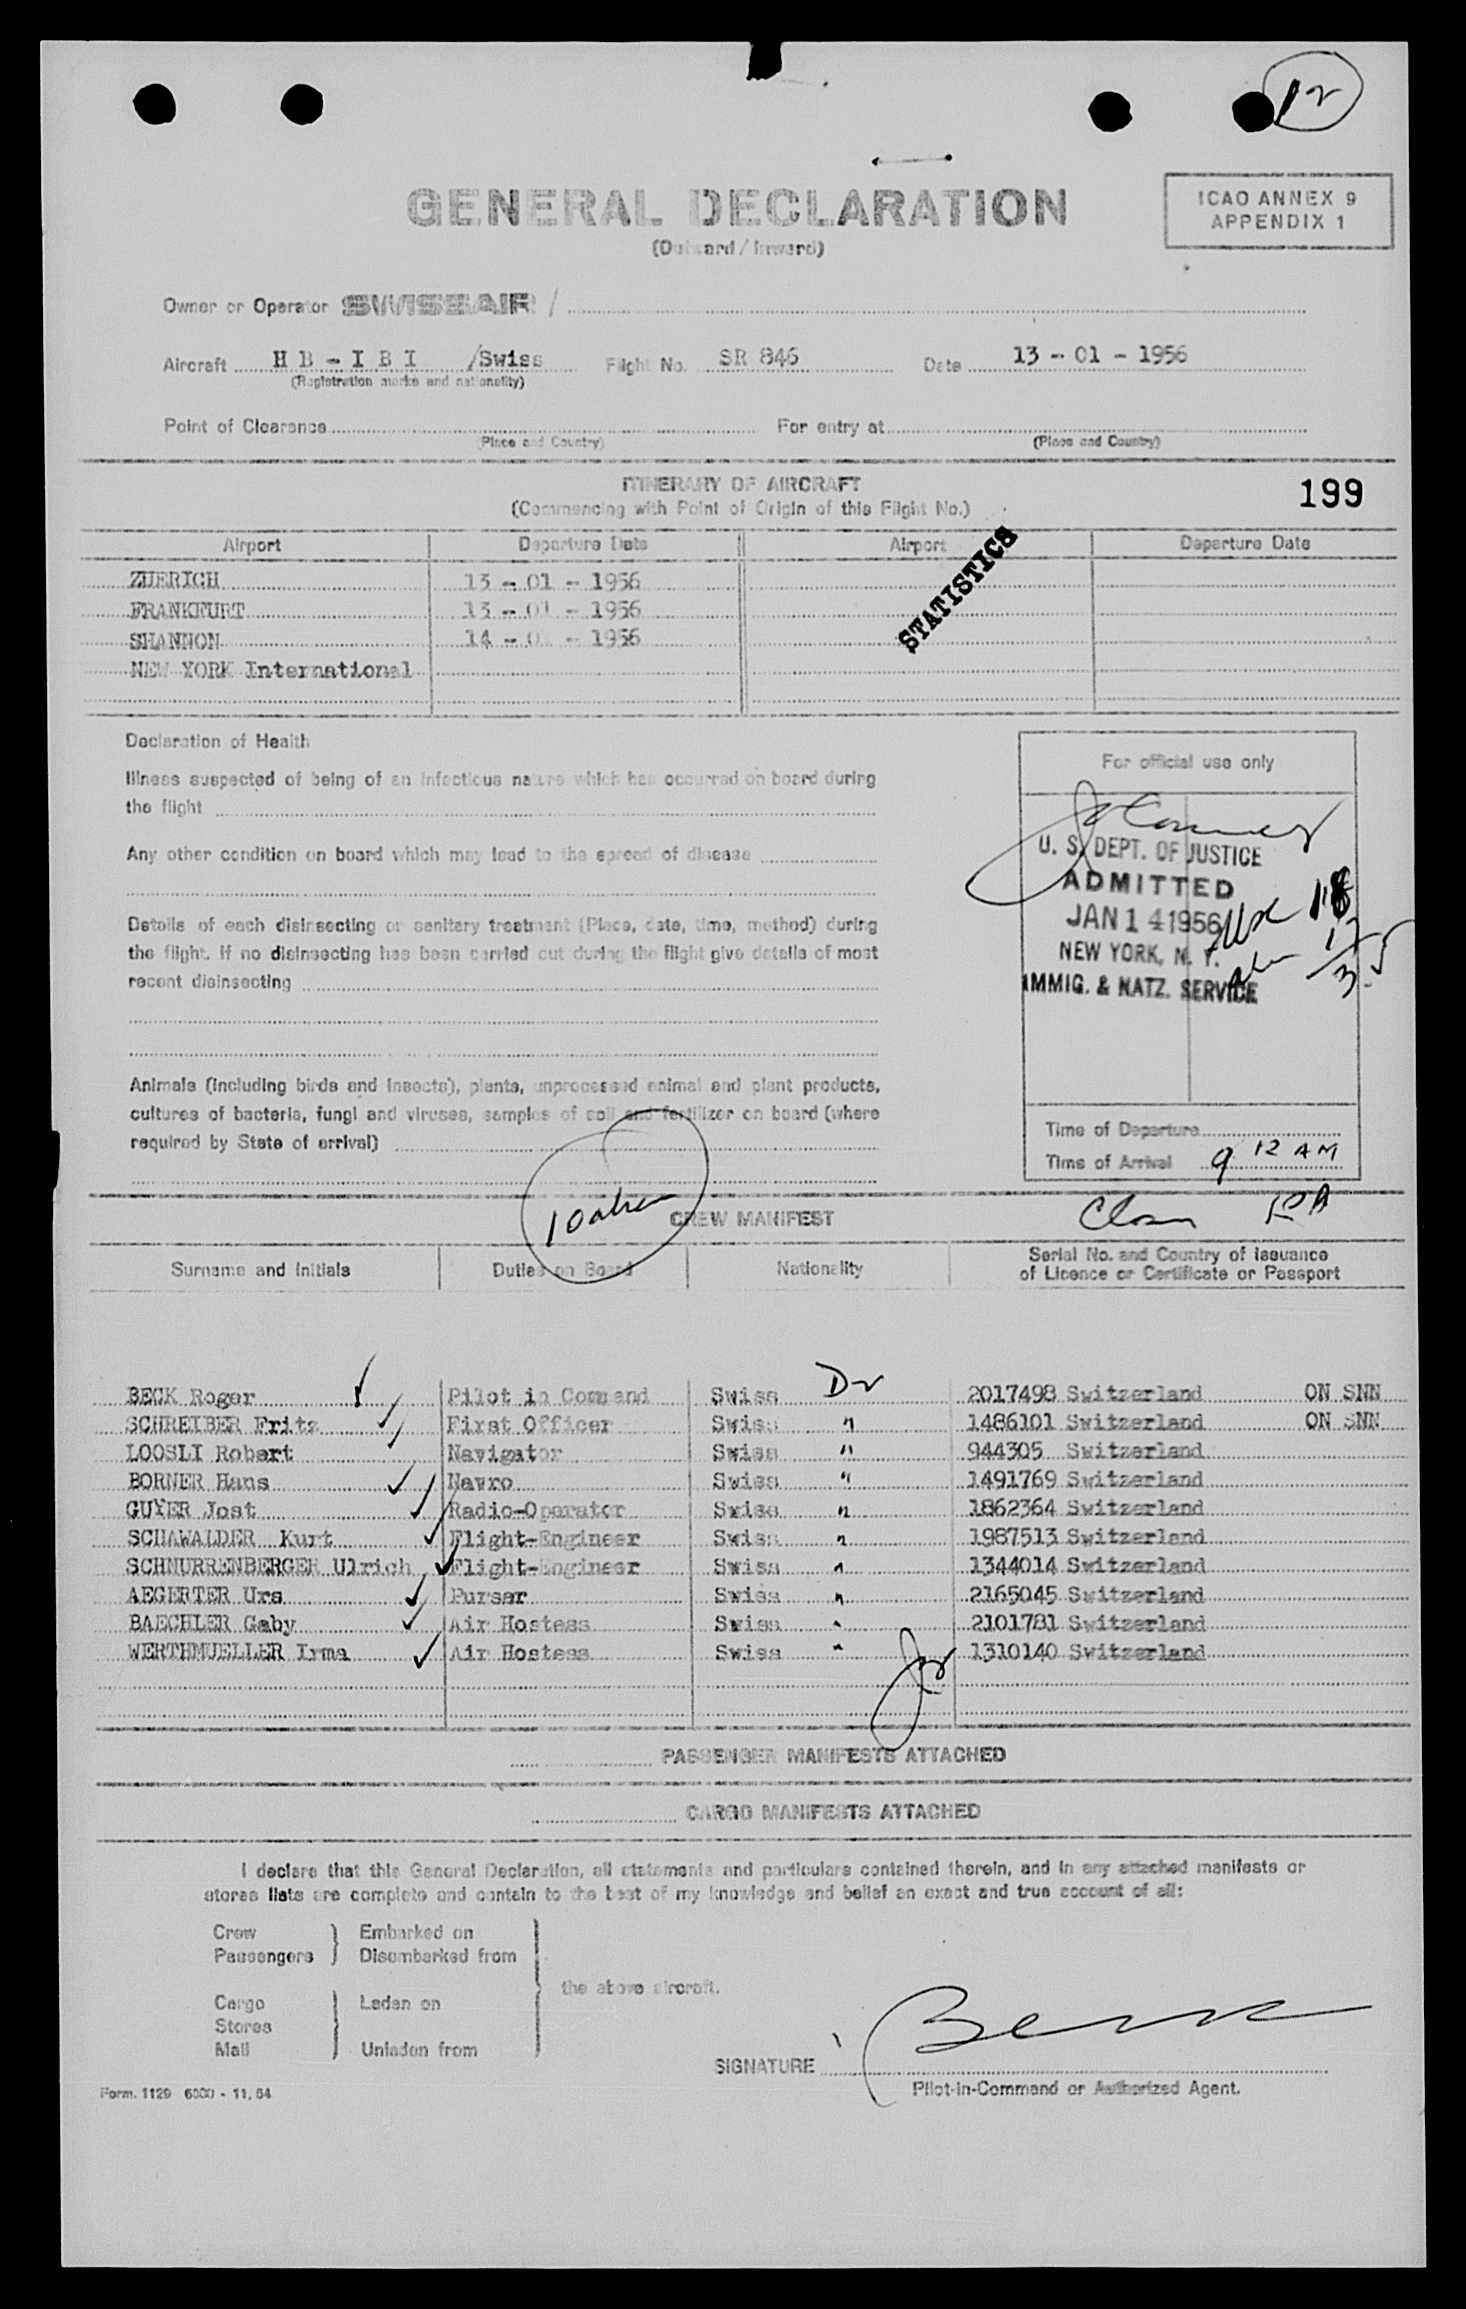 12
GENERAL DECLARATION
(Outward / Inward)
ICAO ANNEX 9
APPENDIX 1
Owner or Operator SWISSAIR /
Aircraft HB-IBI /Swiss Flight No. SR 846 Date 13 - 01 - 1956
(Registration marks and nationality)
Point of Clearance For entry at
(Place and Country) (Place and Country)
ITINERARY OF AIRCRAFT
(Commencing with Point of Origin of this Flight No.)
199
Airport Departure Date Airport Departure Date
STATISTICS
ZUERICH 13 - 01 - 1956
FRANKFURT 13 - 01 - 1956
SHANNON 14 - 01 - 1956
NEW YORK International
Declaration of Health
Illness suspected of being of an infectious nature which has occurred on board during
the flight
Any other condition on board which may lead to the spread of disease
Details of each disinsecting or sanitary treatment (Place, date, time, method) during
the flight. If no disinsecting has been carried out during the flight give details of most
recent disinsecting
Animals (including birds and insects), plants, unprocessed animal and plant products,
cultures of bacteria, fungi and viruses, samples of soil and fertilizer on board (where
required by State of arrival)
For official use only
U. S. DEPT. OF JUSTICE
ADMITTED
JAN 14 1956
NEW YORK, N. Y.
IMMIG. & NATZ. SERVICE
Time of Departure
Time of Arrival 9 12 AM
10
CREW MANIFEST
Surname and Initials Duties on Board Nationality Serial No. and Country of Issuance
of Licence or Certificate or Passport
BECK Roger Pilot in Command Swiss 2017498 Switzerland ON SNN
SCHREIBER Fritz First Officer Swiss " 1486101 Switzerland ON SNN
LOOSLI Robert Navigator Swiss " 944305 Switzerland
BORNER Hans Navro Swiss " 1491769 Switzerland
GUYER Jost Radio-Operator Swiss " 1862364 Switzerland
SCHAWALDER Kurt Flight-Engineer Swiss " 1987513 Switzerland
SCHNURRENBERGER Ulrich Flight-Engineer Swiss " 1344014 Switzerland
AEGERTER Urs Purser Swiss " 2165045 Switzerland
BAECHLER Gaby Air Hostess Swiss " 2101781 Switzerland
WERTHMUELLER Irma Air Hostess Swiss " 1310140 Switzerland
PASSENGER MANIFESTS ATTACHED
CARGO MANIFESTS ATTACHED
I declare that this General Declaration, all statements and particulars contained therein, and in any attached manifests or
stores lists are complete and contain to the best of my knowledge and belief an exact and true account of all:
Crew Embarked on
Passengers Disembarked from
the above aircraft.
Cargo Laden on
Stores
Mail Unladen from
SIGNATURE Beck
Pilot-in-Command or Authorized Agent.
Form. 1129 6000 - 11.54